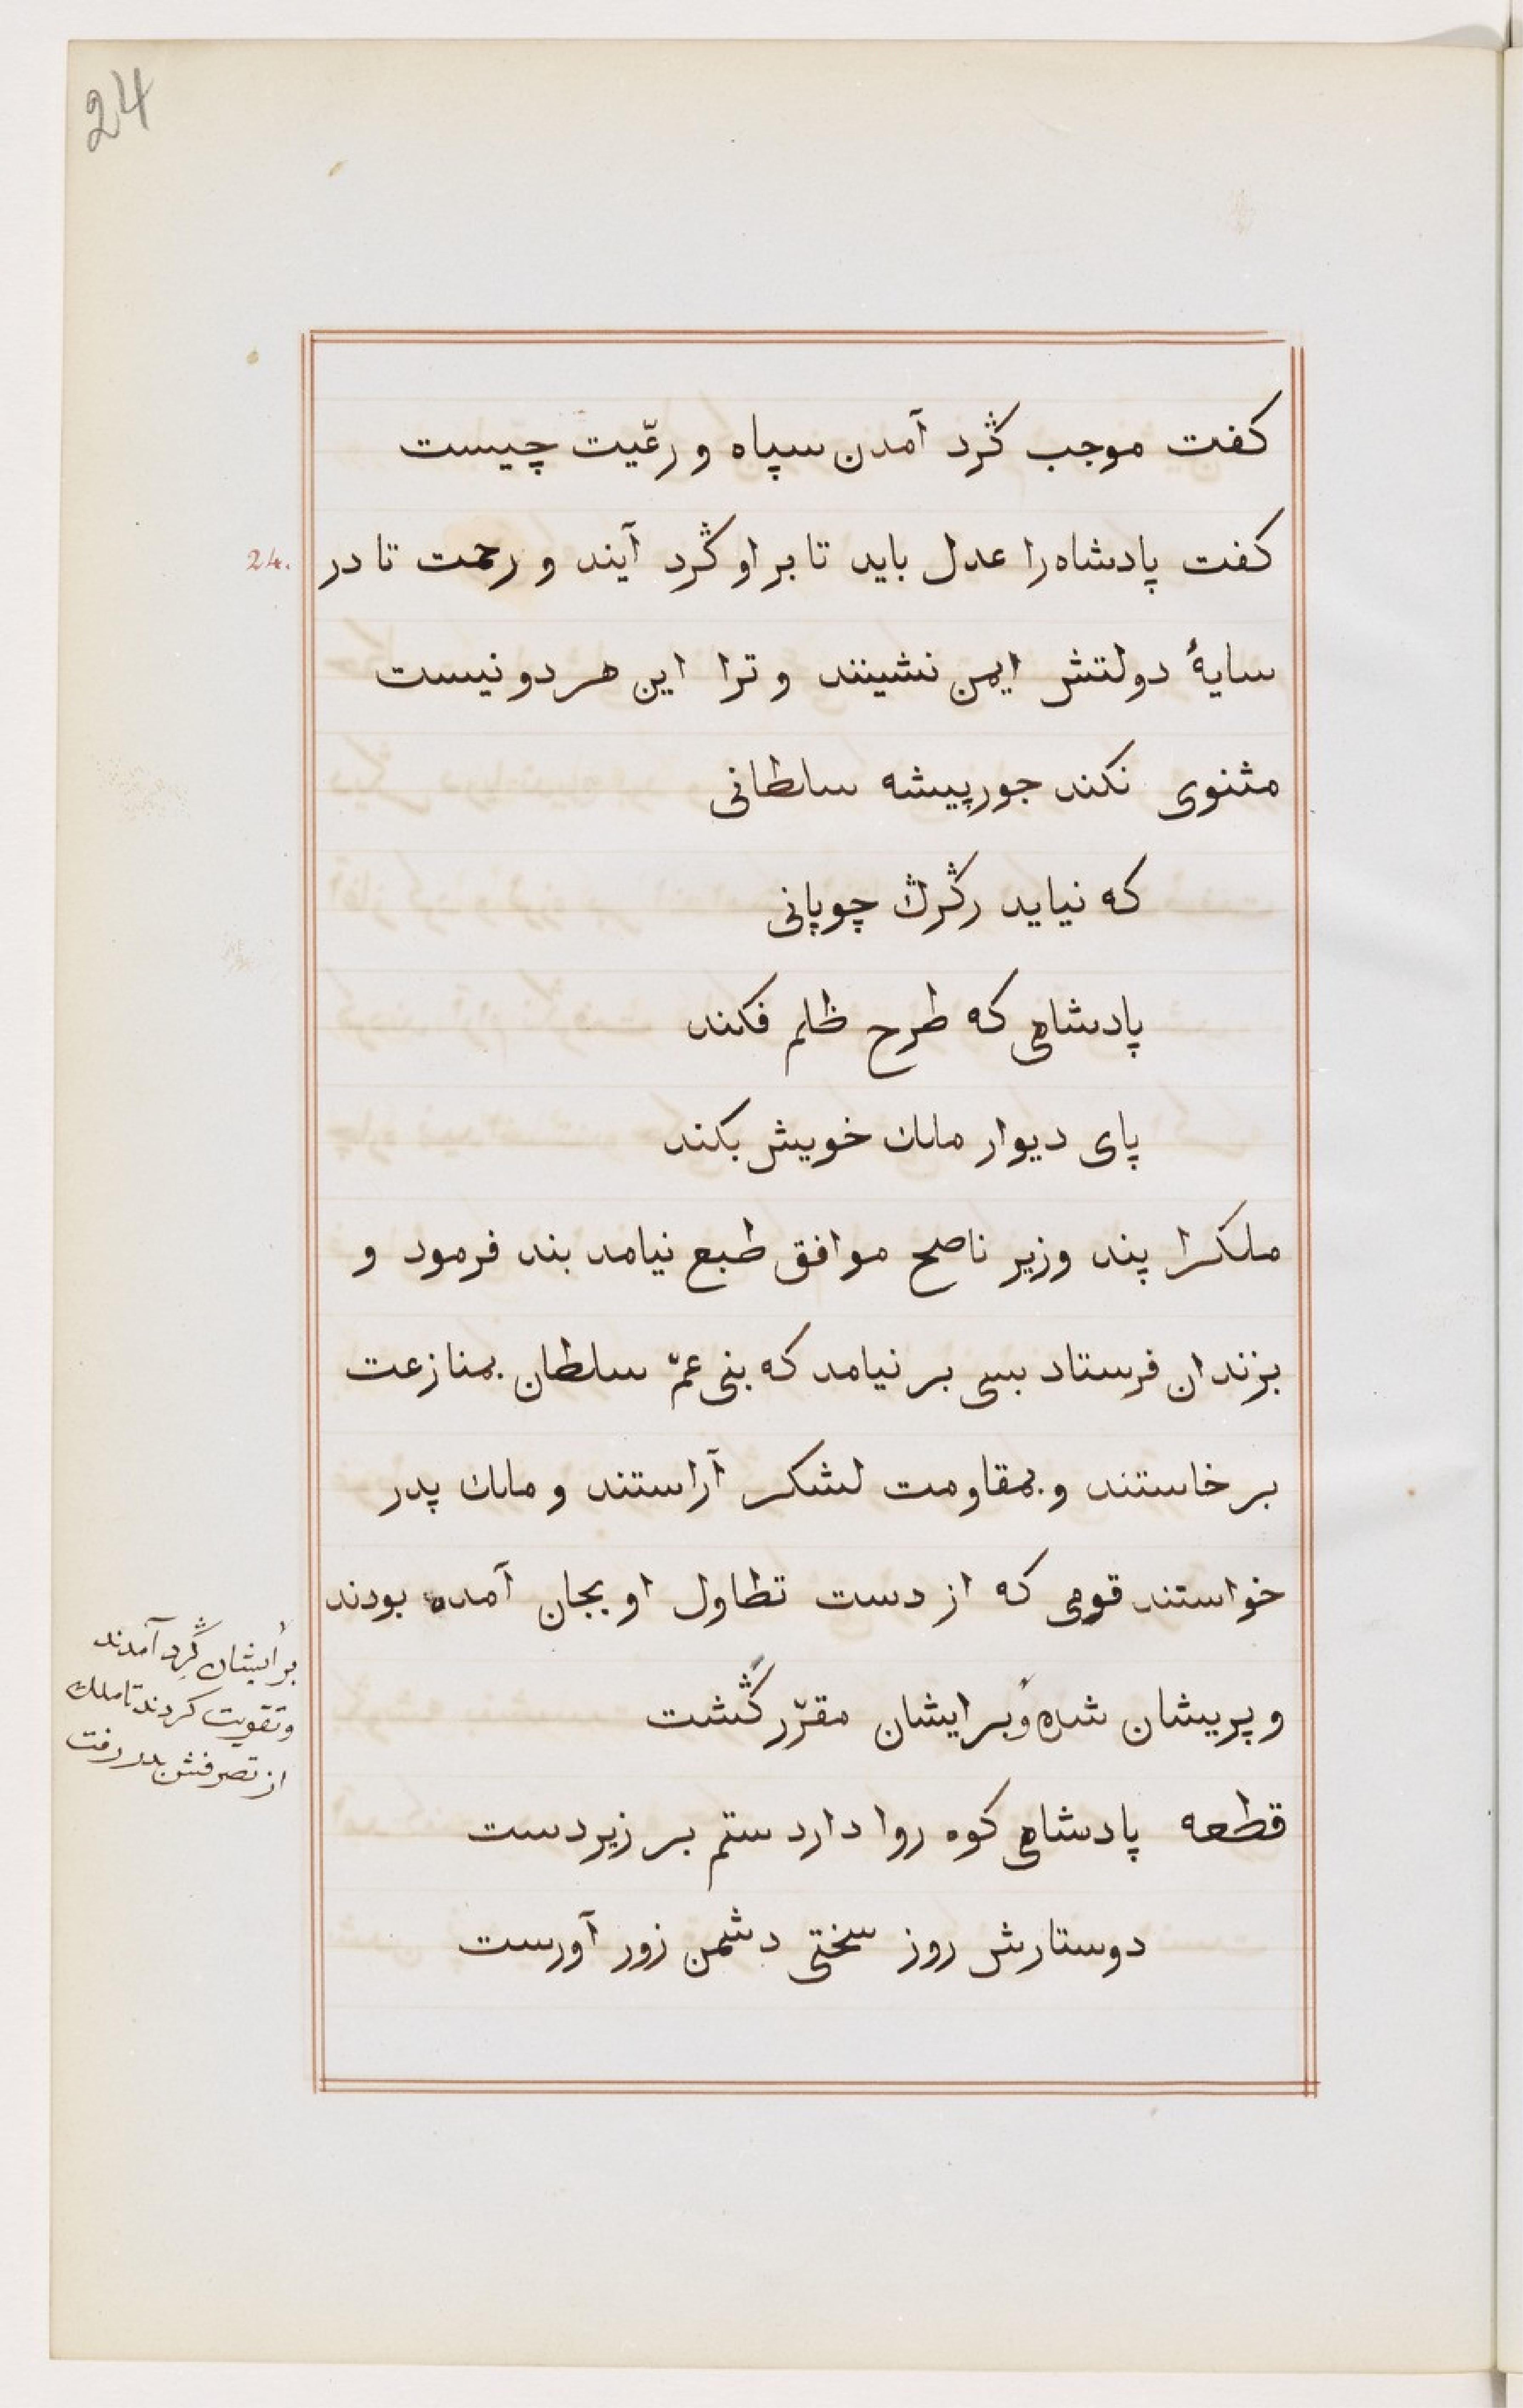 24
كفت موجب ݣرد آمدن سپاه و رعّيت چيست
كفت پادشاه را عدل بايد تا بر او ݣرد آيند و رحمت تا در
24.
سايهٔ دولتش ايمن نشينند و ترا اين هر دو نيست
مثنوى نكند جور پيشه سلطانى
كه نيايد رݣرݣ چوپانى
پادشاهى كه طرح ظلم فكند
پاى ديوار ملك خويش بكند
ملكرا پند وزير ناصح موافق طبع نيامد بند فرمود و
بزندان فرستاد بسى بر نيامد كه بنى عمّ سلطان بمنازعت
بر خاستند و بمقاومت لشكر آراستند و ملك پدر
خواستند قومى كه از دست تطاول او بجان آمده بودند
و پريشان شده و برايشان مقرّر ݣشت
بر ايشان ݣِرد آمدند
و تقويت كردند تا ملك
از تصرفش بدر رفت
قطعه پادشاهى كوه روا دارد ستم بر زيردست
دوستارش روز سختى دشمن زور آورست